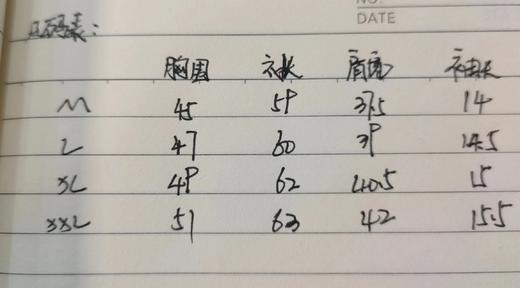 NO.
DATE
尺码表:
胸围 衣长 肩宽 袖长
M 45 59 37.5 14
L 47 60 39 14.5
XL 49 62 40.5 15
XXL 51 63 42 15.5